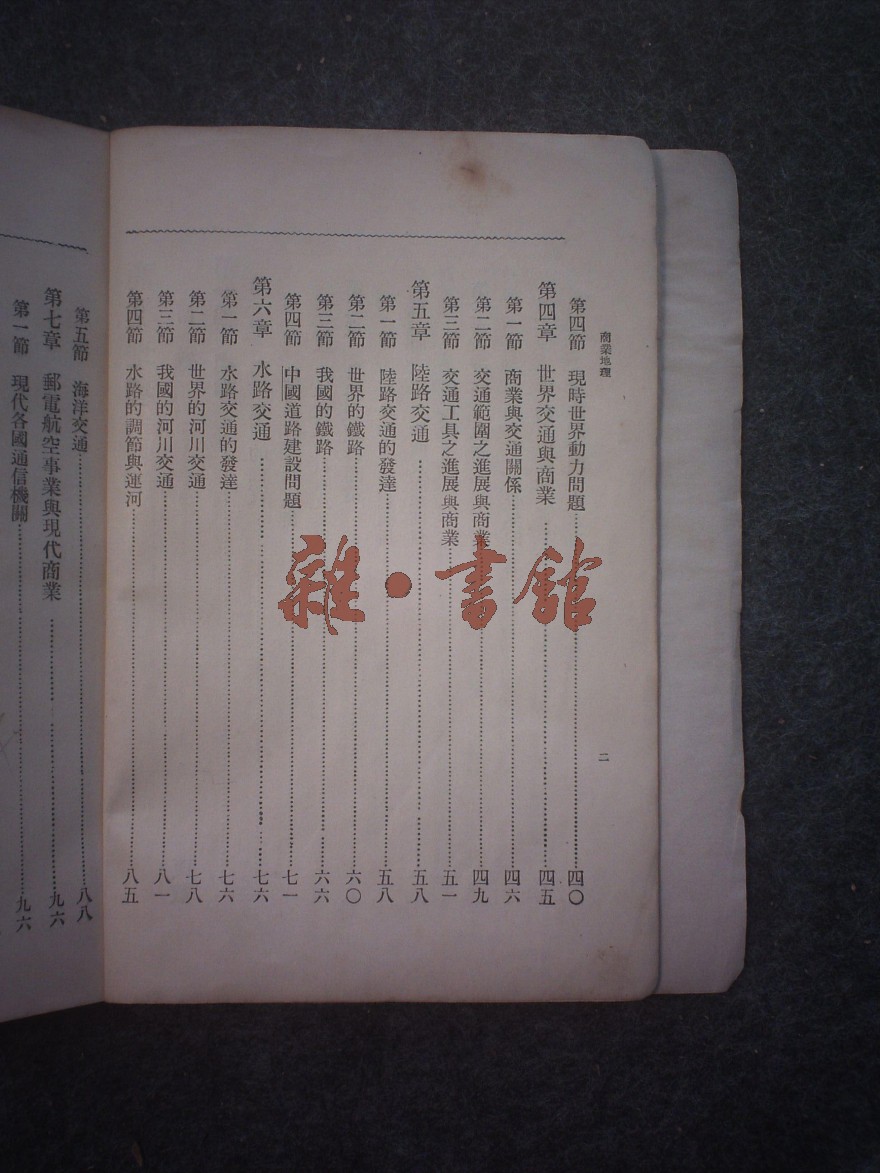 商業地理
二
第四節　現時世界動力問題……四〇
第四章　世界交通與商業……四五
第一節　商業與交通關係……四六
第二節　交通範圍之進展與商業……四九
第三節　交通工具之進展與商業……五一
第五章　陸路交通……五八
第一節　陸路交通的發達……五八
第二節　世界的鐵路……六〇
第三節　我國的鐵路……六六
第四節　中國道路建設問題……七一
第六章　水路交通……七六
第一節　水路交通的發達……七六
第二節　世界的河川交通……七八
第三節　我國的河川交通……八一
第四節　水路的調節與運河……八五
第五節　海洋交通……八八
第七章　郵電航空事業與現代商業……九六
第一節　現代各國通信機關……九六
雜·書館